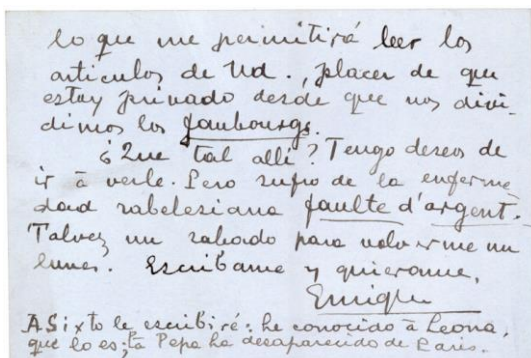 lo que me permitirá leer los
articulos de Ud., placer de que
estoy privado desde que nos divi-
dimos los faubourgs.
¿Que tal alli? Tengo deseos de
ir á verle. Pero sufro de la enferme
dad rabelesiana faulte d'argent.
Talvez un sabado para volverme un
lunes. Escribame y quierame,
Enrique
A Sixto le escribiré: he conocido á Leona,
que lo es; la Pepa ha desaparecido de Paris.